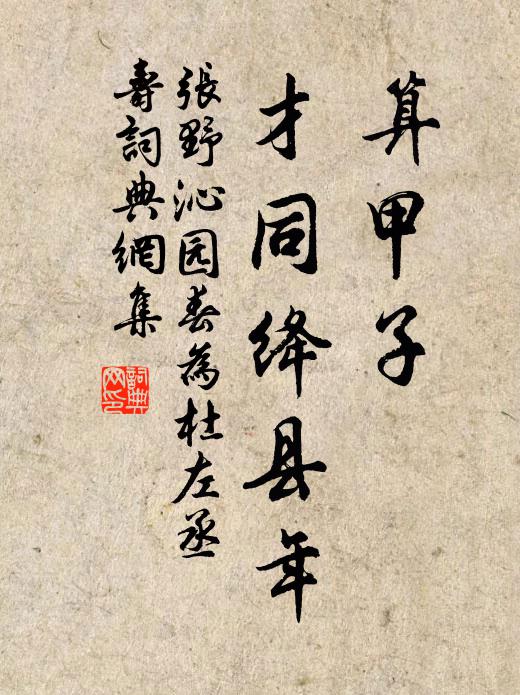 算甲子
才同绛县年
張野沁园春為杜左丞
壽詞典網集
詞典
网印